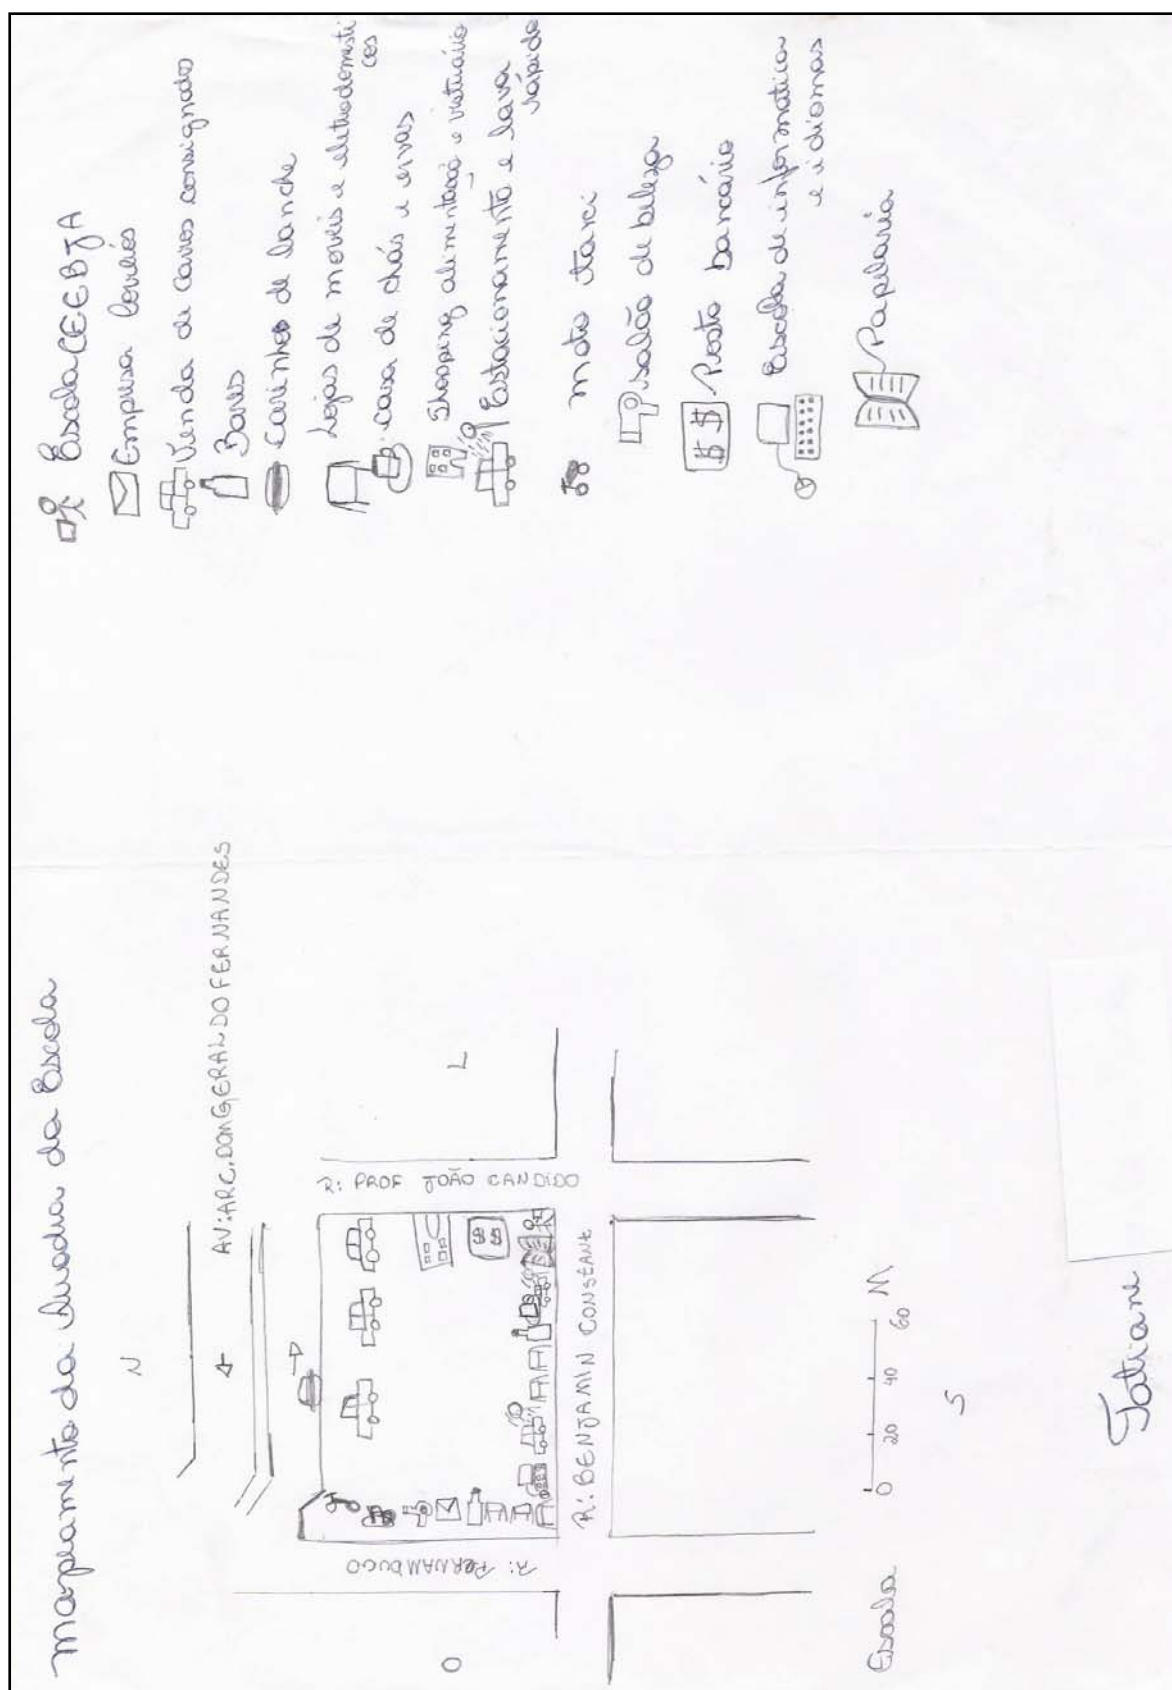 Mapeamento da Quadra da Escola
N
AV: ARC. DOM GERALDO FERNANDES
O
L
R: PERNAMBUCO
R: PROF JOÃO CANDIDO
R: BENJAMIN CONSTANT
$ $
Escala
0 20 40 60 M
S
Tatiane
Escola CEEBJA
Empresa Correios
Venda de Carros consignados
Bares
Carinhos de lanche
Lojas de moveis e eletrodomesti
cos
casa de chás e ervas
Shopping alimentação e vistuário
Estacionamento e lava
rápido
moto taxi
salão de beleza
$ $
Posto bancário
Escola de informatica
e idiomas
Papelaria